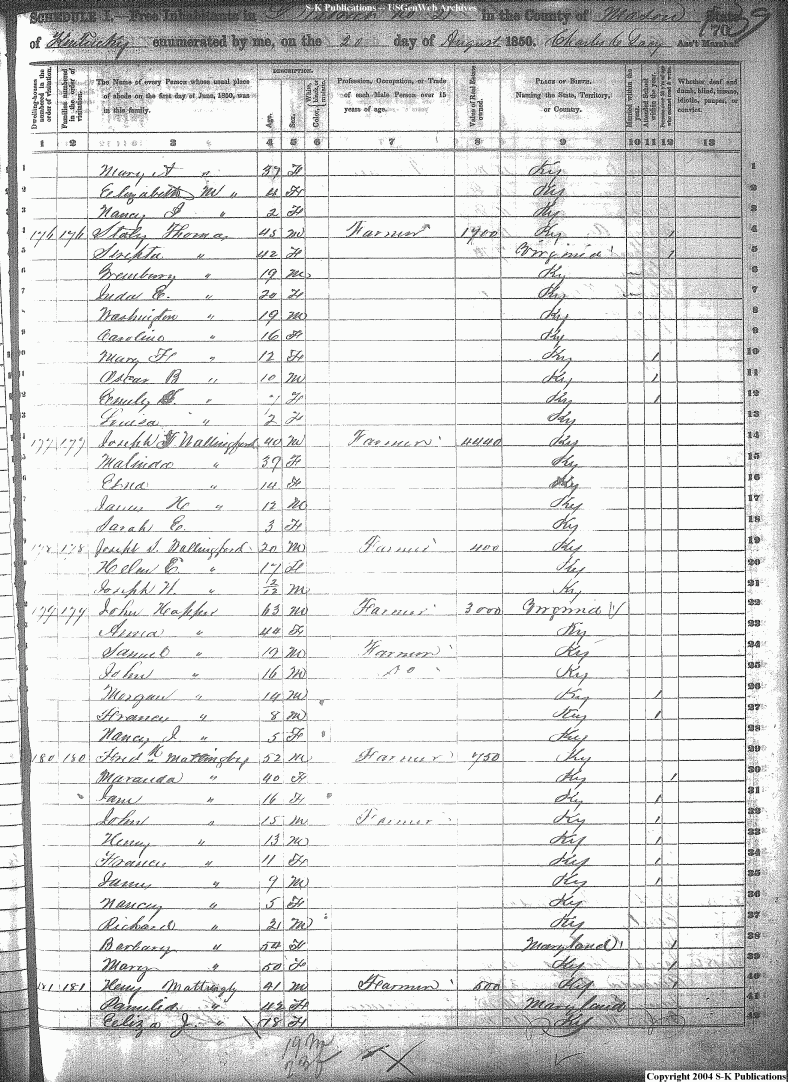 S-K Publications – USGenWeb Archives
SCHEDULE I.—Free Inhabitants in in the County of Mason State
of Kentucky enumerated by me, on the 20 day of August 1850. Ass't Marshal.
Dwelling-houses numbered in the order of visitation.
Families numbered in the order of visitation.
The Name of every Person whose usual place of abode on the first day of June, 1850, was in this family.
DESCRIPTION.
Age.
Sex.
Color, White, black, or mulatto.
Profession, Occupation, or Trade of each Male Person over 15 years of age.
Value of Real Estate owned.
PLACE OF BIRTH. Naming the State, Territory, or Country.
Married within the year.
Attended School within the year.
Whether deaf and dumb, blind, insane, idiotic, pauper, or convict.
1 2 3 4 5 6 7 8 9 10 11 12 13
1 Mary A " 37 F Ky
2 Elizabeth M " 4 F Ky
3 Nancy J " 2 F Ky
4 176 176 Staly Thomas 45 M Farmer 1900 Ky 1
5 " 42 F Virginia 1
6 " 19 M Ky
7 Juda E. " 20 F Ky
8 Washington " 19 M Ky
9 Caroline " 16 F Ky
10 Mary F " 12 F Ky 1
11 Oscar B " 10 M Ky 1
12 Emily " 7 F Ky 1
13 Louisa " 1/2 F Ky
14 177 177 Joseph Wallingford 40 M Farmer 4440 Ky
15 Malinda " 37 F Ky
16 Edna " 14 F Ky
17 James H " 12 M Ky
18 Sarah E. 3 F Ky
19 178 178 Joseph S. Wallingford 20 M Farmer 400 Ky
20 Helen E. " 17 F Ky
21 Joseph H. " 2/12 M Ky
22 179 179 John Happer 63 M Farmer 3000 Virginia
23 " 44 F Ky
24 Samuel " 19 M Farmer Ky
25 John " 16 M Do Ky
26 Morgan " 14 M Ky 1
27 Francis " 8 M Ky 1
28 Nancy J " 5 F Ky
29 180 180 Mattingly 52 M Farmer 750 Ky
30 Maranda " 40 F Ky 1
31 Jane " 16 F Ky 1
32 John " 15 M Farmer Ky 1
33 Henry " 13 M Ky 1
34 Frances " 11 F Ky 1
35 James " 9 M Ky 1
36 Nancy " 5 F Ky
37 Richard " 21 M Ky
38 Barbary " 54 F Maryland 1
39 Mary " 50 F Ky 1
40 181 181 Henry Mattingly 41 M Farmer 500 Ky 1
41 Pamelia " 42 F Maryland
42 Eliza J. " 18 F Ky
19 M
23 F
Copyright 2004 S-K Publications